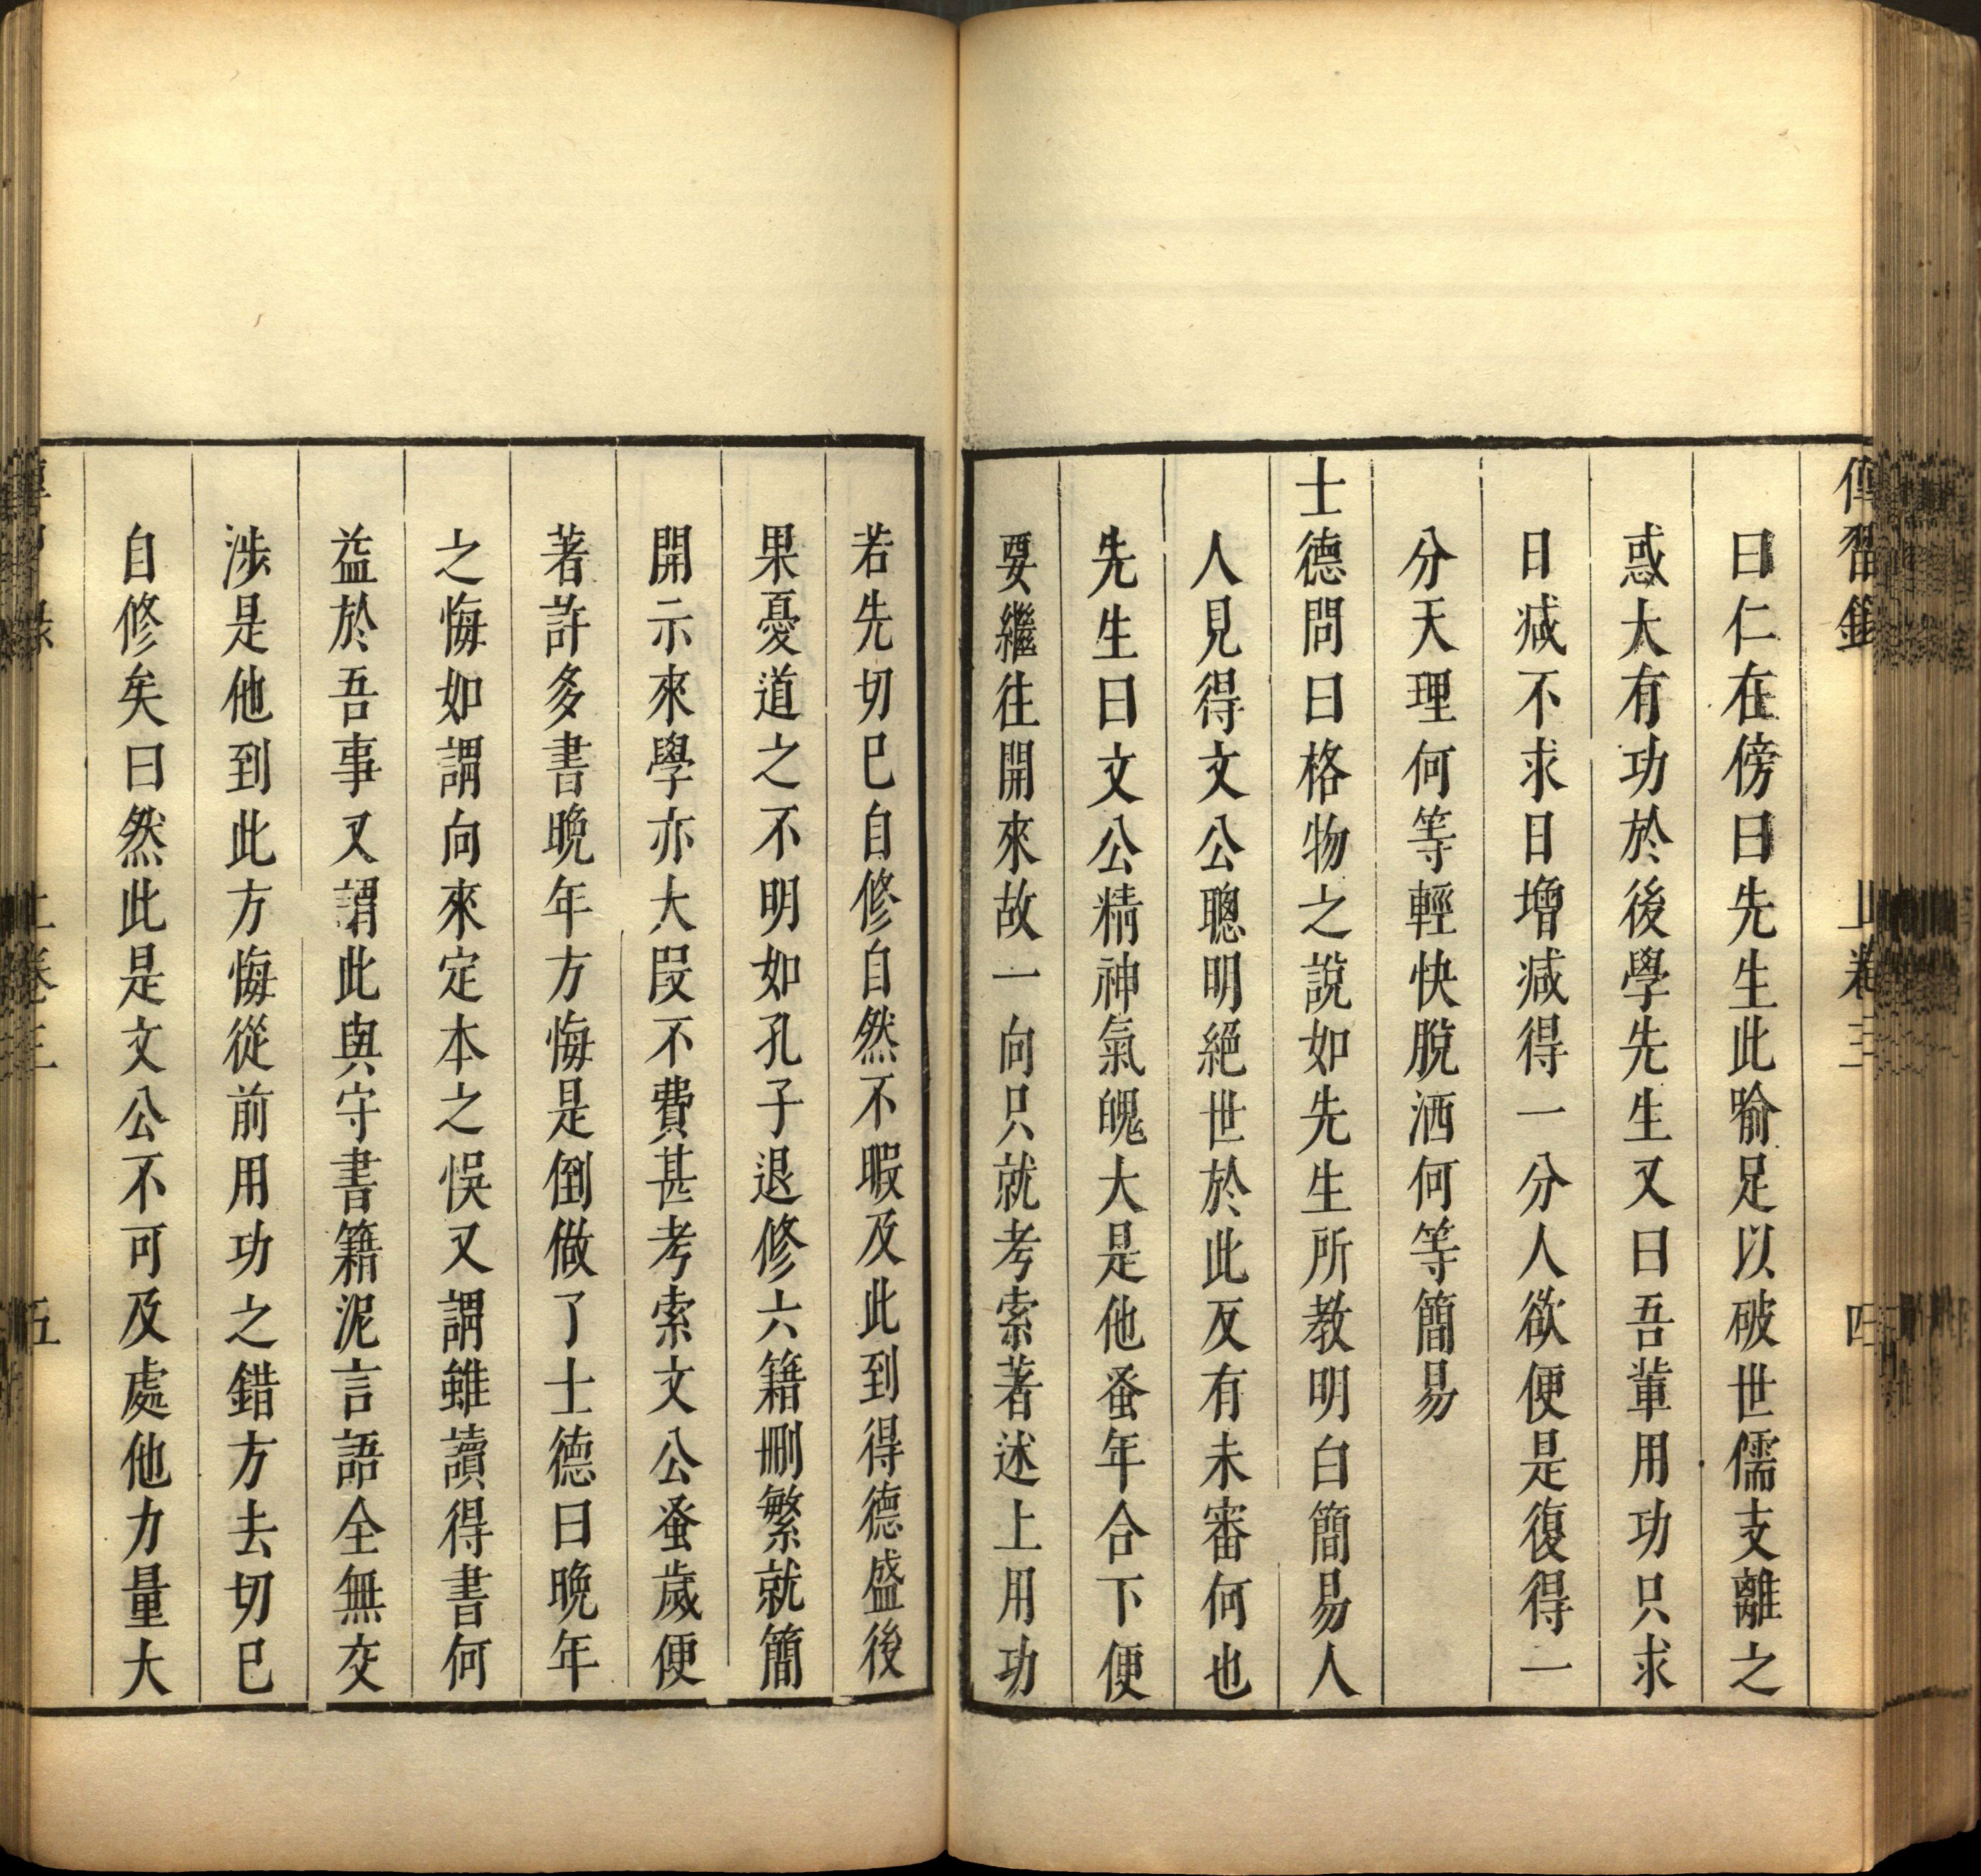 傳習錄 上卷三 四
曰仁在傍曰先生此喻足以破世儒支離之
惑大有功於後學先生又曰吾輩用功只求
日减不求日增减得一分人欲便是復得一
分天理何等輕快脫洒何等簡易
士德問曰格物之說如先生所教明白簡易人
人見得文公聰明絕世於此反有未審何也
先生曰文公精神氣魄大是他蚤年合下便
要繼往開來故一向只就考索著述上用功
若先切已自修自然不暇及此到得德盛後
果憂道之不明如孔子退修六籍刪繁就簡
開示來學亦大段不費甚考索文公蚤歲便
著許多書晚年方悔是倒做了士德曰晚年
之悔如謂向來定本之悞又謂雖讀得書何
益於吾事又謂此與守書籍泥言語全無交
涉是他到此方悔從前用功之錯方去切已
自修矣曰然此是文公不可及處他力量大
上卷三 五